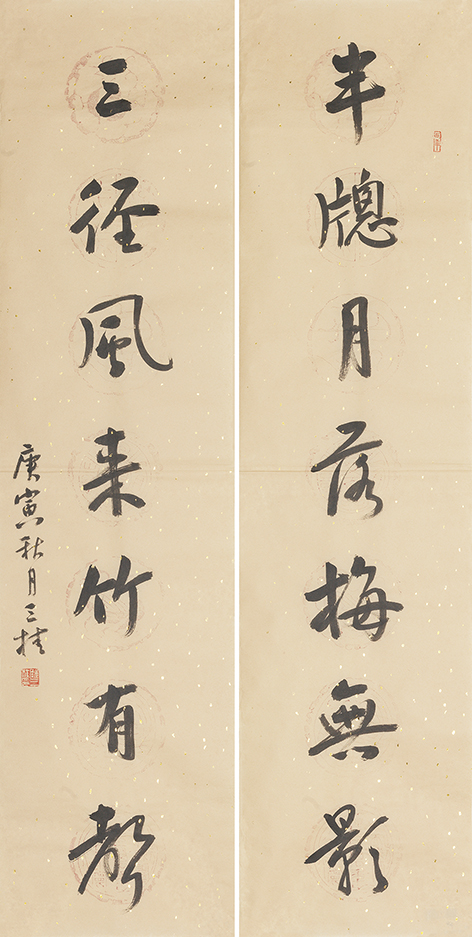 半牕月落梅無影
三径風来竹有聲
庚寅秋月三桂